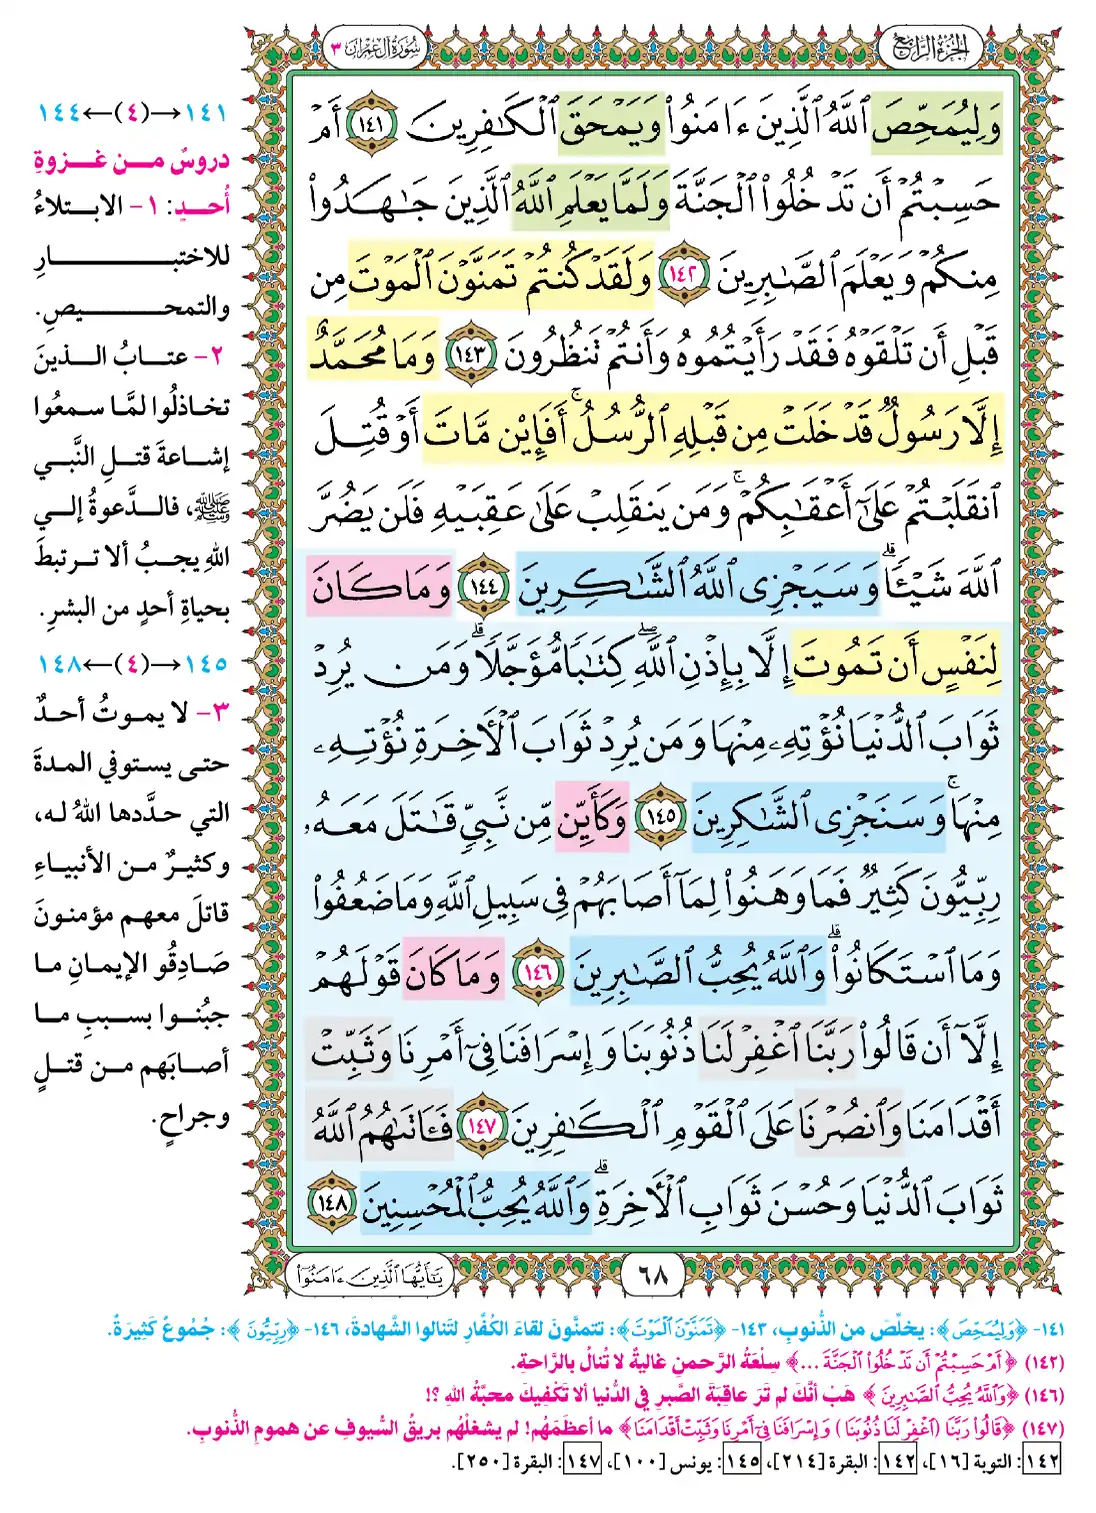 الجزء الرابع
سورة آل عمران ٣
وَلِيُمَحِّصَ ٱللَّهُ ٱلَّذِينَ ءَامَنُوا۟ وَيَمْحَقَ ٱلْكَٰفِرِينَ ١٤١ أَمْ
حَسِبْتُمْ أَن تَدْخُلُوا۟ ٱلْجَنَّةَ وَلَمَّا يَعْلَمِ ٱللَّهُ ٱلَّذِينَ جَٰهَدُوا۟
مِنكُمْ وَيَعْلَمَ ٱلصَّٰبِرِينَ ١٤٢ وَلَقَدْ كُنتُمْ تَمَنَّوْنَ ٱلْمَوْتَ مِن
قَبْلِ أَن تَلْقَوْهُ فَقَدْ رَأَيْتُمُوهُ وَأَنتُمْ تَنظُرُونَ ١٤٣ وَمَا مُحَمَّدٌ
إِلَّا رَسُولٌ قَدْ خَلَتْ مِن قَبْلِهِ ٱلرُّسُلُ ۚ أَفَإِي۟ن مَّاتَ أَوْ قُتِلَ
ٱنقَلَبْتُمْ عَلَىٰٓ أَعْقَٰبِكُمْ ۚ وَمَن يَنقَلِبْ عَلَىٰ عَقِبَيْهِ فَلَن يَضُرَّ
ٱللَّهَ شَيْـًٔا ۗ وَسَيَجْزِى ٱللَّهُ ٱلشَّٰكِرِينَ ١٤٤ وَمَا كَانَ
لِنَفْسٍ أَن تَمُوتَ إِلَّا بِإِذْنِ ٱللَّهِ كِتَٰبًا مُّؤَجَّلًا ۗ وَمَن يُرِدْ
ثَوَابَ ٱلدُّنْيَا نُؤْتِهِۦ مِنْهَا وَمَن يُرِدْ ثَوَابَ ٱلْءَاخِرَةِ نُؤْتِهِۦ
مِنْهَا ۚ وَسَنَجْزِى ٱلشَّٰكِرِينَ ١٤٥ وَكَأَيِّن مِّن نَّبِىٍّ قَٰتَلَ مَعَهُۥ
رِبِّيُّونَ كَثِيرٌ فَمَا وَهَنُوا۟ لِمَآ أَصَابَهُمْ فِى سَبِيلِ ٱللَّهِ وَمَا ضَعُفُوا۟
وَمَا ٱسْتَكَانُوا۟ ۗ وَٱللَّهُ يُحِبُّ ٱلصَّٰبِرِينَ ١٤٦ وَمَا كَانَ قَوْلَهُمْ
إِلَّآ أَن قَالُوا۟ رَبَّنَا ٱغْفِرْ لَنَا ذُنُوبَنَا وَإِسْرَافَنَا فِىٓ أَمْرِنَا وَثَبِّتْ
أَقْدَامَنَا وَٱنصُرْنَا عَلَى ٱلْقَوْمِ ٱلْكَٰفِرِينَ ١٤٧ فَـَٔاتَىٰهُمُ ٱللَّهُ
ثَوَابَ ٱلدُّنْيَا وَحُسْنَ ثَوَابِ ٱلْءَاخِرَةِ ۗ وَٱللَّهُ يُحِبُّ ٱلْمُحْسِنِينَ ١٤٨
٦٨
يَٰٓأَيُّهَا ٱلَّذِينَ ءَامَنُوا۟
١٤١→(٤)←١٤٤
دروسٌ من غزوةِ
أُحدٍ: ١- الابتلاءُ
للاختبارِ
والتمحيصِ.
٢- عتابُ الذينَ
تخاذلُوا لمَّا سمعُوا
إشاعةَ قتلِ النَّبي
ﷺ، فالدَّعوةُ إلى
اللهِ يجبُ ألا ترتبطَ
بحياةِ أحدٍ من البشرِ.
١٤٥→(٤)←١٤٨
٣- لا يموتُ أحدٌ
حتى يستوفي المدةَ
التي حدَّدها اللهُ له،
وكثيرٌ من الأنبياءِ
قاتلَ معهم مؤمنونَ
صَادِقُو الإيمانِ ما
جبُنوا بسببِ ما
أصابَهم من قتلٍ
وجراحٍ.
١٤١- ﴿وَلِيُمَحِّصَ﴾: يخلِّصَ من الذُّنوبِ، ١٤٣- ﴿تَمَنَّوْنَ ٱلْمَوْتَ﴾: تتمنَّون لقاءَ الكُفَّارِ لتَنالوا الشَّهادةَ، ١٤٦- ﴿رِبِّيُّونَ﴾: جُمُوعٌ كَثِيرَةٌ.
(١٤٢) ﴿أَمْ حَسِبْتُمْ أَن تَدْخُلُوا۟ ٱلْجَنَّةَ ...﴾ سِلْعَةُ الرَّحمنِ غاليةٌ لا تُنالُ بالرَّاحةِ.
(١٤٦) ﴿وَٱللَّهُ يُحِبُّ ٱلصَّٰبِرِينَ﴾ هَبْ أنَّكَ لم تَرَ عاقِبَةَ الصَّبرِ في الدُّنيا ألا تَكْفِيكَ محبَّةُ اللهِ ؟!
(١٤٧) ﴿قَالُوا۟ رَبَّنَا (ٱغْفِرْ لَنَا ذُنُوبَنَا) وَإِسْرَافَنَا فِىٓ أَمْرِنَا وَثَبِّتْ أَقْدَامَنَا﴾ ما أعظَمَهُم! لم يشغلْهُم بريقُ السُّيوفِ عن همومِ الذُّنوبِ.
١٤٢: التوبة [١٦]، ١٤٢: البقرة [٢١٤]، ١٤٥: يونس [١٠٠]، ١٤٧: البقرة [٢٥٠].